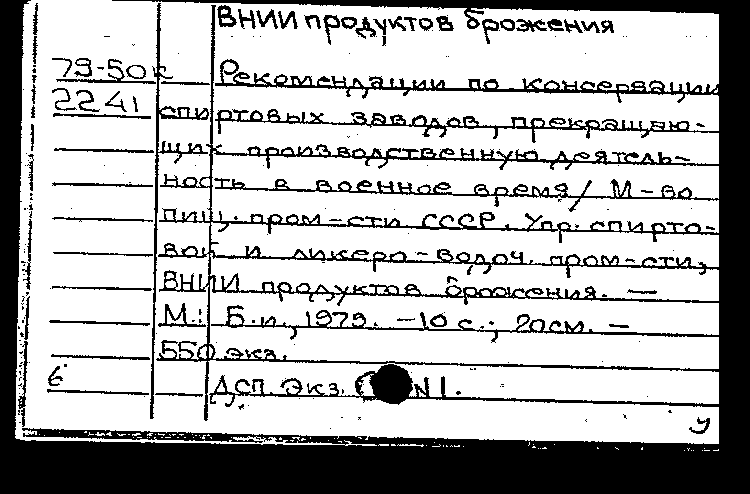 ВНИИ продуктов брожения
79-50к Рекомендации по консервации
2241 спиртовых заводов, прекращаю-
щих производственную деятель-
ность в военное время/ М-во
пищ. пром-сти СССР. Упр. спирто-
вой и ликеро-водоч. пром-сти,
ВНИИ продуктов брожения. —
М.: Б.и., 1979. -10 с.; 20см. —
550 экз.
6 Дсп. Экз. N1.
У